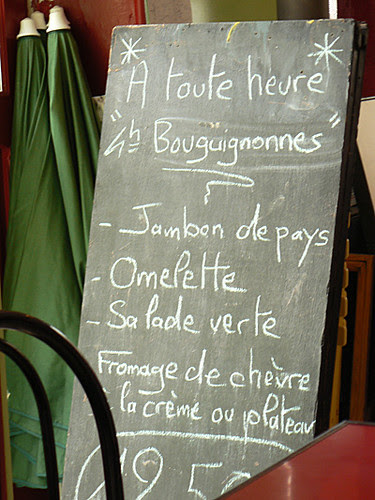 * A toute heure *
" 4h Bouguignonnes "
- Jambon de pays
- Omelette
- Salade verte
Fromage de chèvre
à la crème ou plateau
12.50